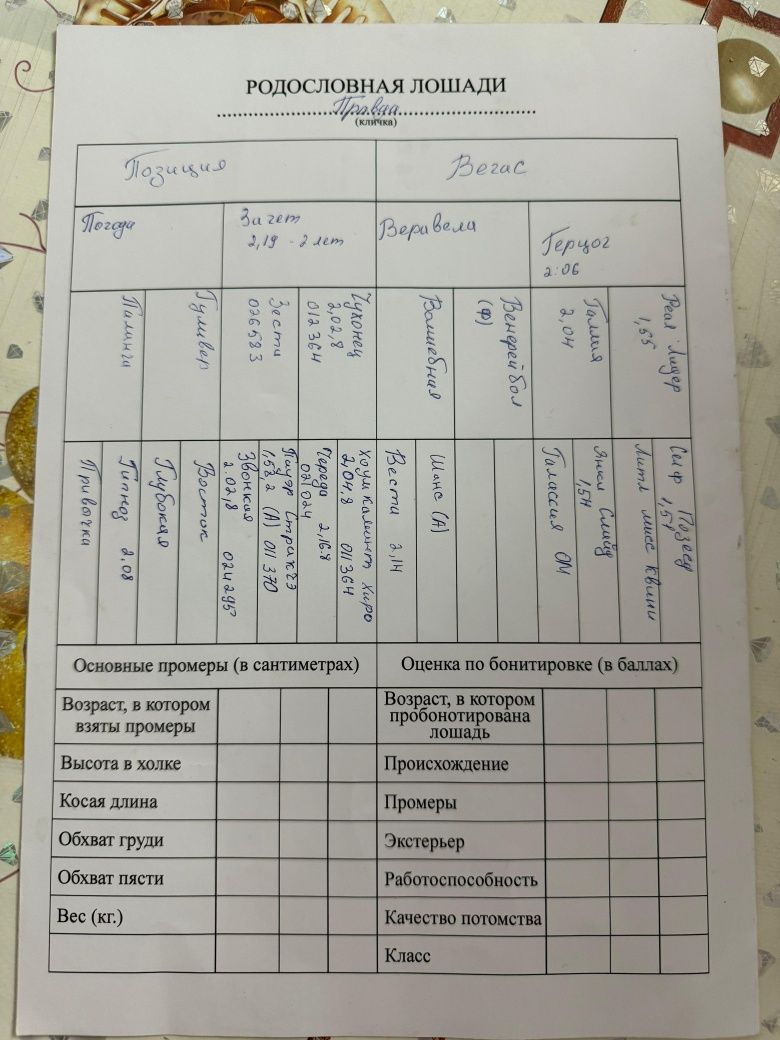 РОДОСЛОВНАЯ ЛОШАДИ
Правда
(кличка)
Позиция
Вегас
Погода
Зачет
2,19 - 2 лет
Веравела
Герцог
2:06
Паминга
Гуливер
Зести
026583
Чухонец
2,02,8
012364
Волшебная
Венерейбол
(Ф)
Галлия
2,04
Реал Лидер
1,55
Привычка
Гипноз 2.08
Глубокая
Восток
Звонкая
2.02,8 024295
Пауэр Страйкз
1,58,2 (А) 011370
Череда 2,168
021024
Хоумкаминг Хиро
2,04,8 011364
Веста 2,14
Шанс (А)
Галассия ОМ
Янки Слайд
1,54
Литл мисс Квини
Селф Позесд
1,51
Основные промеры (в сантиметрах)
Оценка по бонитировке (в баллах)
Возраст, в котором
взяты промеры
Возраст, в котором
пробонотирована
лошадь
Высота в холке
Происхождение
Косая длина
Промеры
Обхват груди
Экстерьер
Обхват пясти
Работоспособность
Вес (кг.)
Качество потомства
Класс